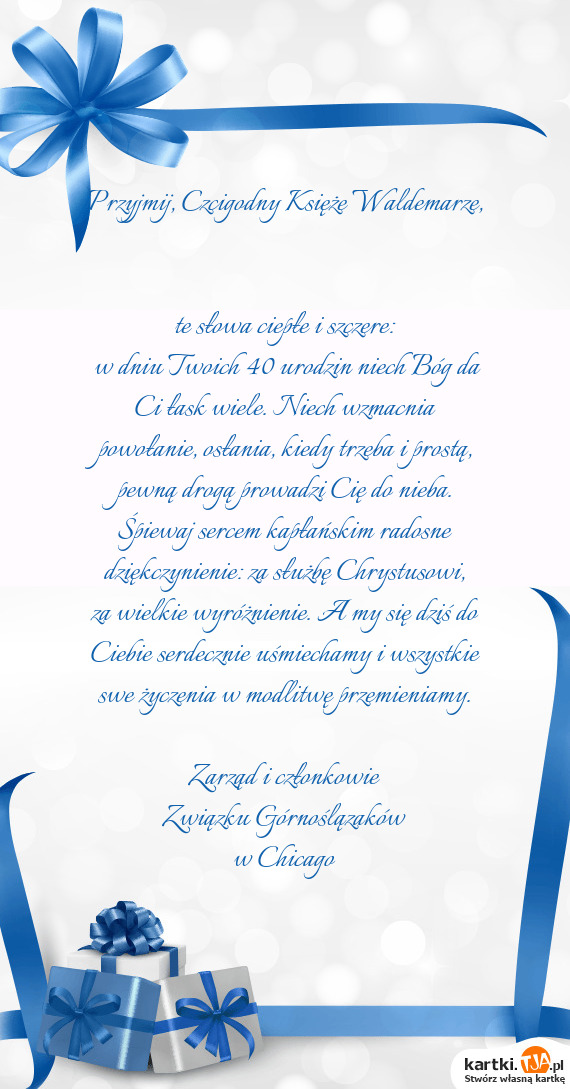 Przyjmij, Czcigodny Księże Waldemarze,
te słowa ciepłe i szczere:
w dniu Twoich 40 urodzin niech Bóg da
Ci łask wiele. Niech wzmacnia
powołanie, osłania, kiedy trzeba i prostą,
pewną drogą prowadzi Cię do nieba.
Śpiewaj sercem kapłańskim radosne
dziękczynienie: za służbę Chrystusowi,
za wielkie wyróżnienie. A my się dziś do
Ciebie serdecznie uśmiechamy i wszystkie
swe życzenia w modlitwę przemieniamy.
Zarząd i członkowie
Związku Górnoślązaków
w Chicago
kartki.TJA.pl
Stwórz własną kartkę